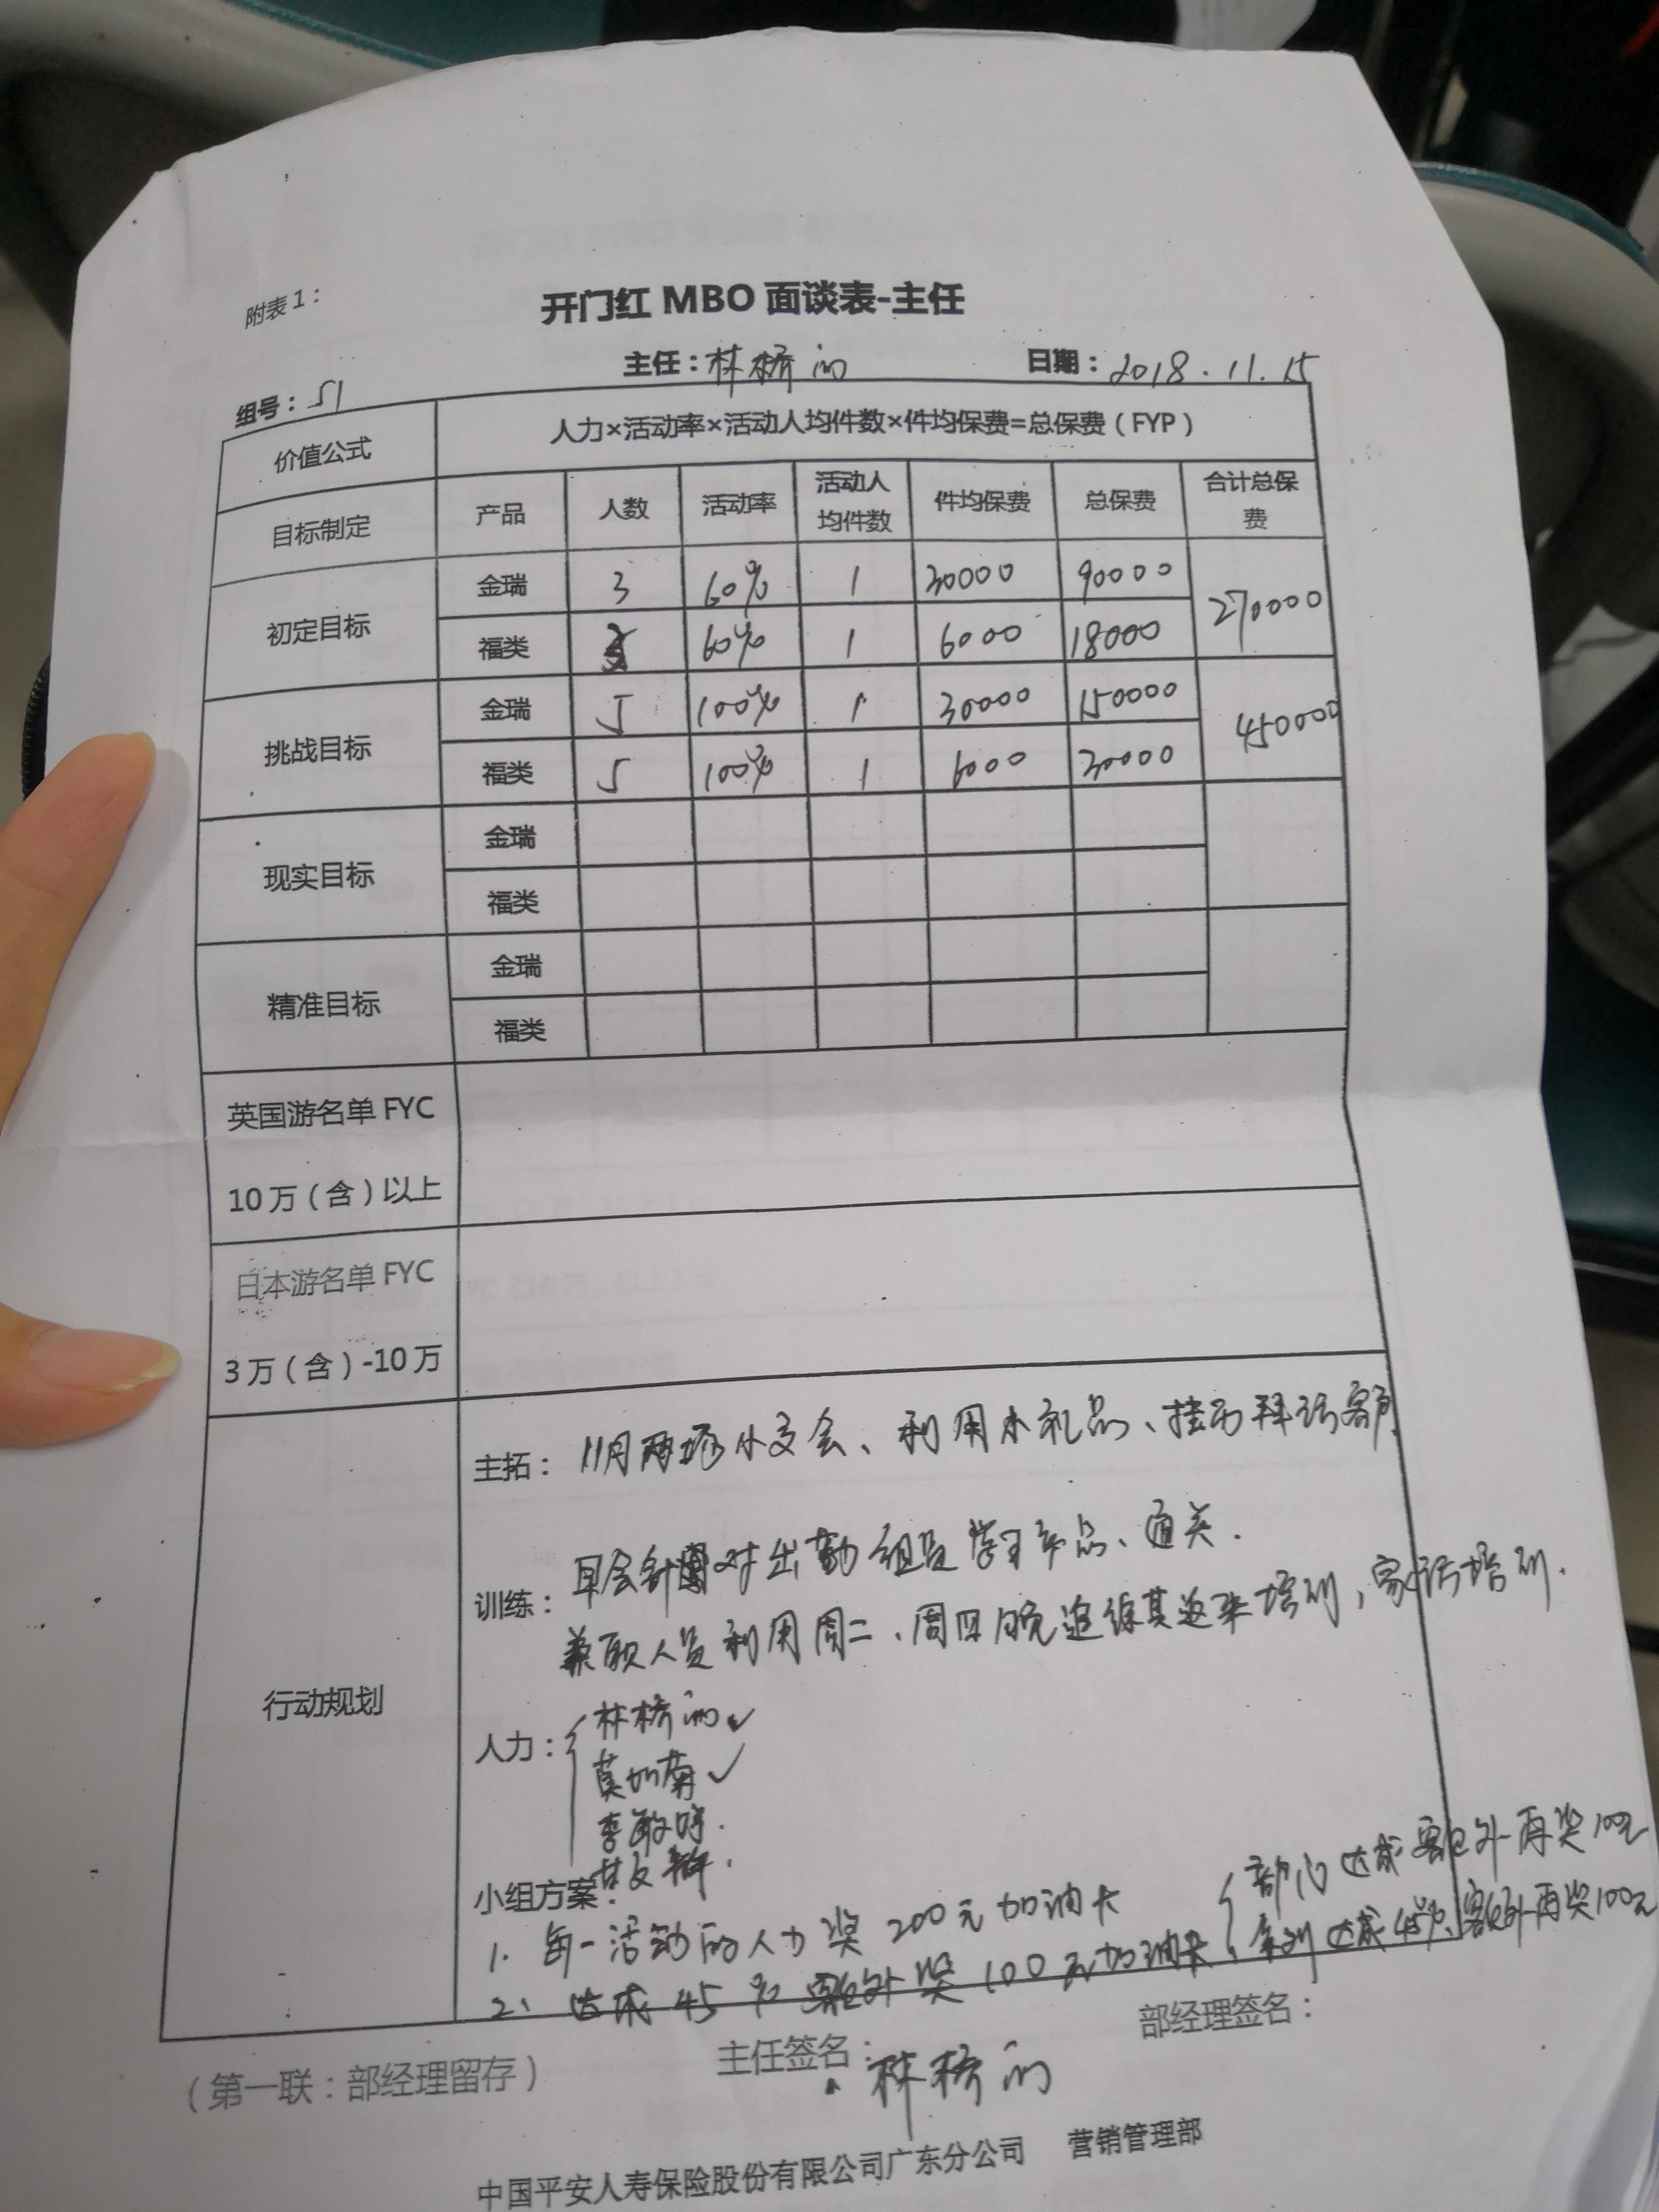 附表1：
开门红 MBO 面谈表-主任
组号：51 主任：林桥 日期：2018.11.15
价值公式 人力×活动率×活动人均件数×件均保费=总保费（FYP）
目标制定 产品 人数 活动率 活动人均件数 件均保费 总保费 合计总保费
初定目标 金瑞 3 60% 1 30000 90000 270000
福类 60% 1 6000 18000
挑战目标 金瑞 5 100% 1 30000 150000 450000
福类 5 100% 1 6000 30000
现实目标 金瑞
福类
精准目标 金瑞
福类
英国游名单 FYC
10万（含）以上
日本游名单 FYC
3万（含）-10万
行动规划
主拓：11月两场小交会、利用小礼品、挂历拜访客户
训练：早会针对出勤组员学习产品、通关.
兼职人员利用周二、周四晚追踪其返来培训，家访培训.
人力：林桥 ✓
莫 南 ✓
李敏婷.
小组方案：
1. 每一活动的人力奖200元加油卡
部 达成额外再奖100元
2、达成45% 额外奖100元加油卡， 达成45%、额外再奖100元
（第一联：部经理留存） 主任签名：林桥 部经理签名：
中国平安人寿保险股份有限公司广东分公司 营销管理部